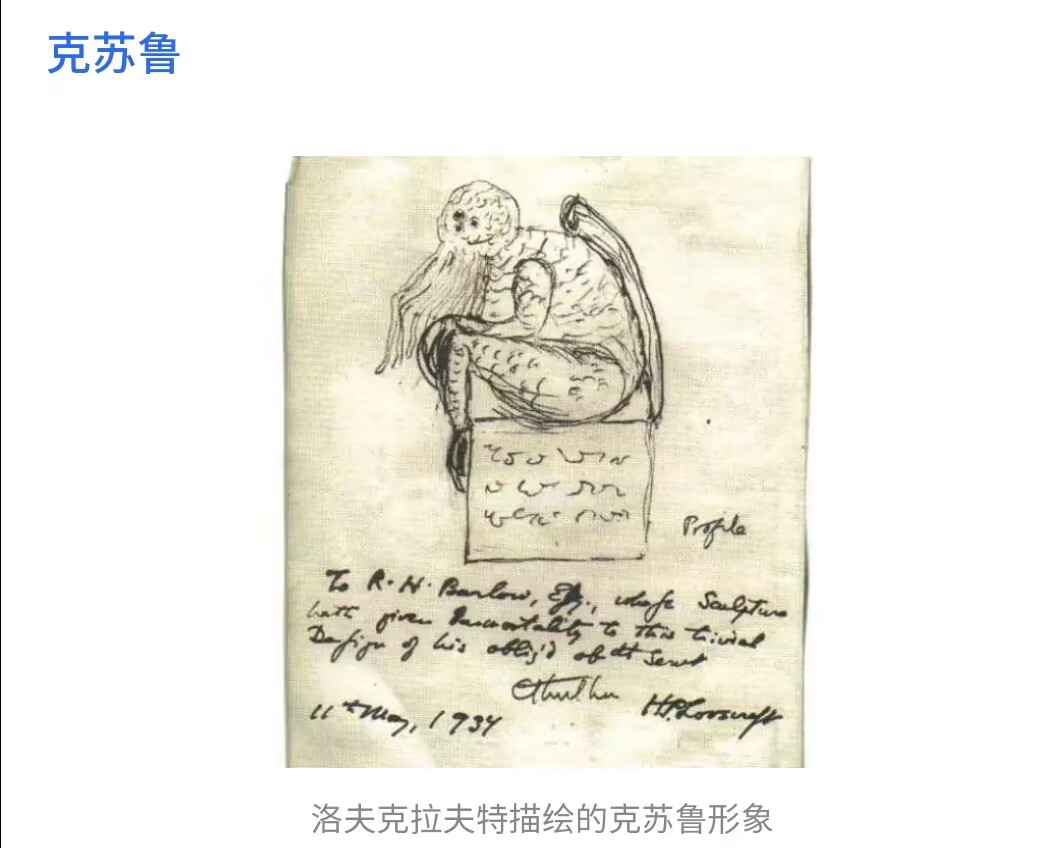 克苏鲁
Profile
To R. H. Barlow, Esq., whose Sculpture
hath given Immortality to this trivial
Design of his oblig'd obdt Servt
Cthulhu H.P. Lovecraft
11th May, 1934
洛夫克拉夫特描绘的克苏鲁形象